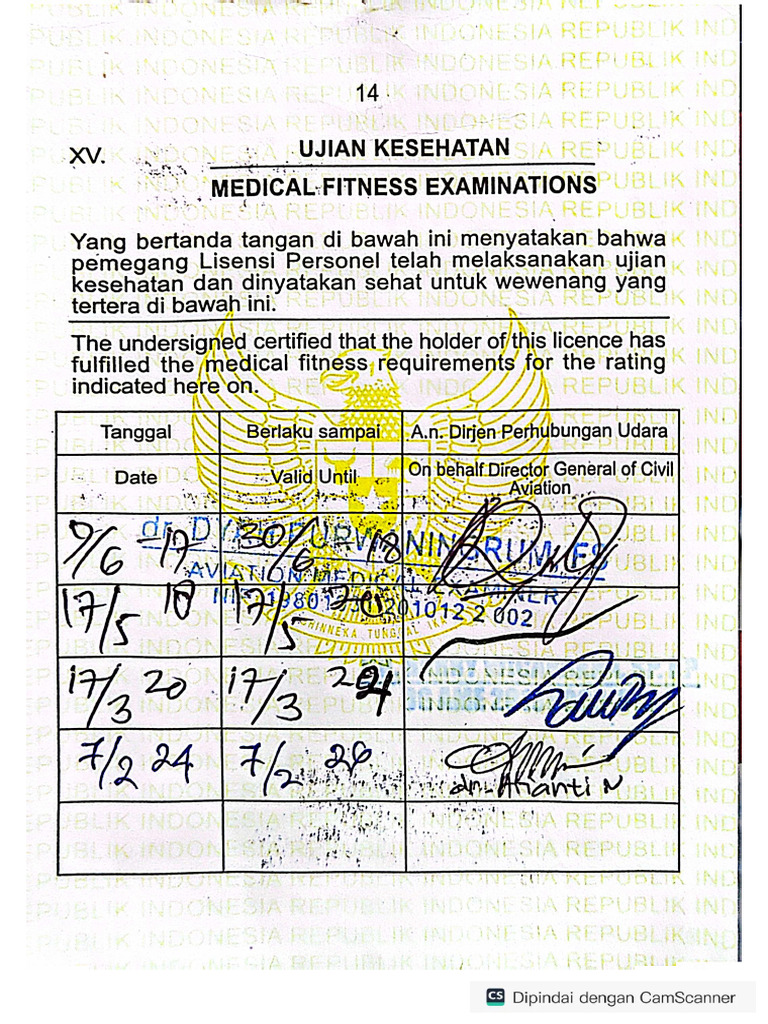 14
XV. UJIAN KESEHATAN
MEDICAL FITNESS EXAMINATIONS
Yang bertanda tangan di bawah ini menyatakan bahwa
pemegang Lisensi Personel telah melaksanakan ujian
kesehatan dan dinyatakan sehat untuk wewenang yang
tertera di bawah ini.
The undersigned certified that the holder of this licence has
fulfilled the medical fitness requirements for the rating
indicated here on.
Tanggal Berlaku sampai A.n. Dirjen Perhubungan Udara
Date Valid Until On behalf Director General of Civil
Aviation
9/6 17 30/6 18
AVIATION MEDICAL EXAMINER
17/5 18 17/5 201012 2 002
BHINNEKA TUNGGAL IKA
17/3 20 17/3
7/2 24 7/2 26
CS Dipindai dengan CamScanner